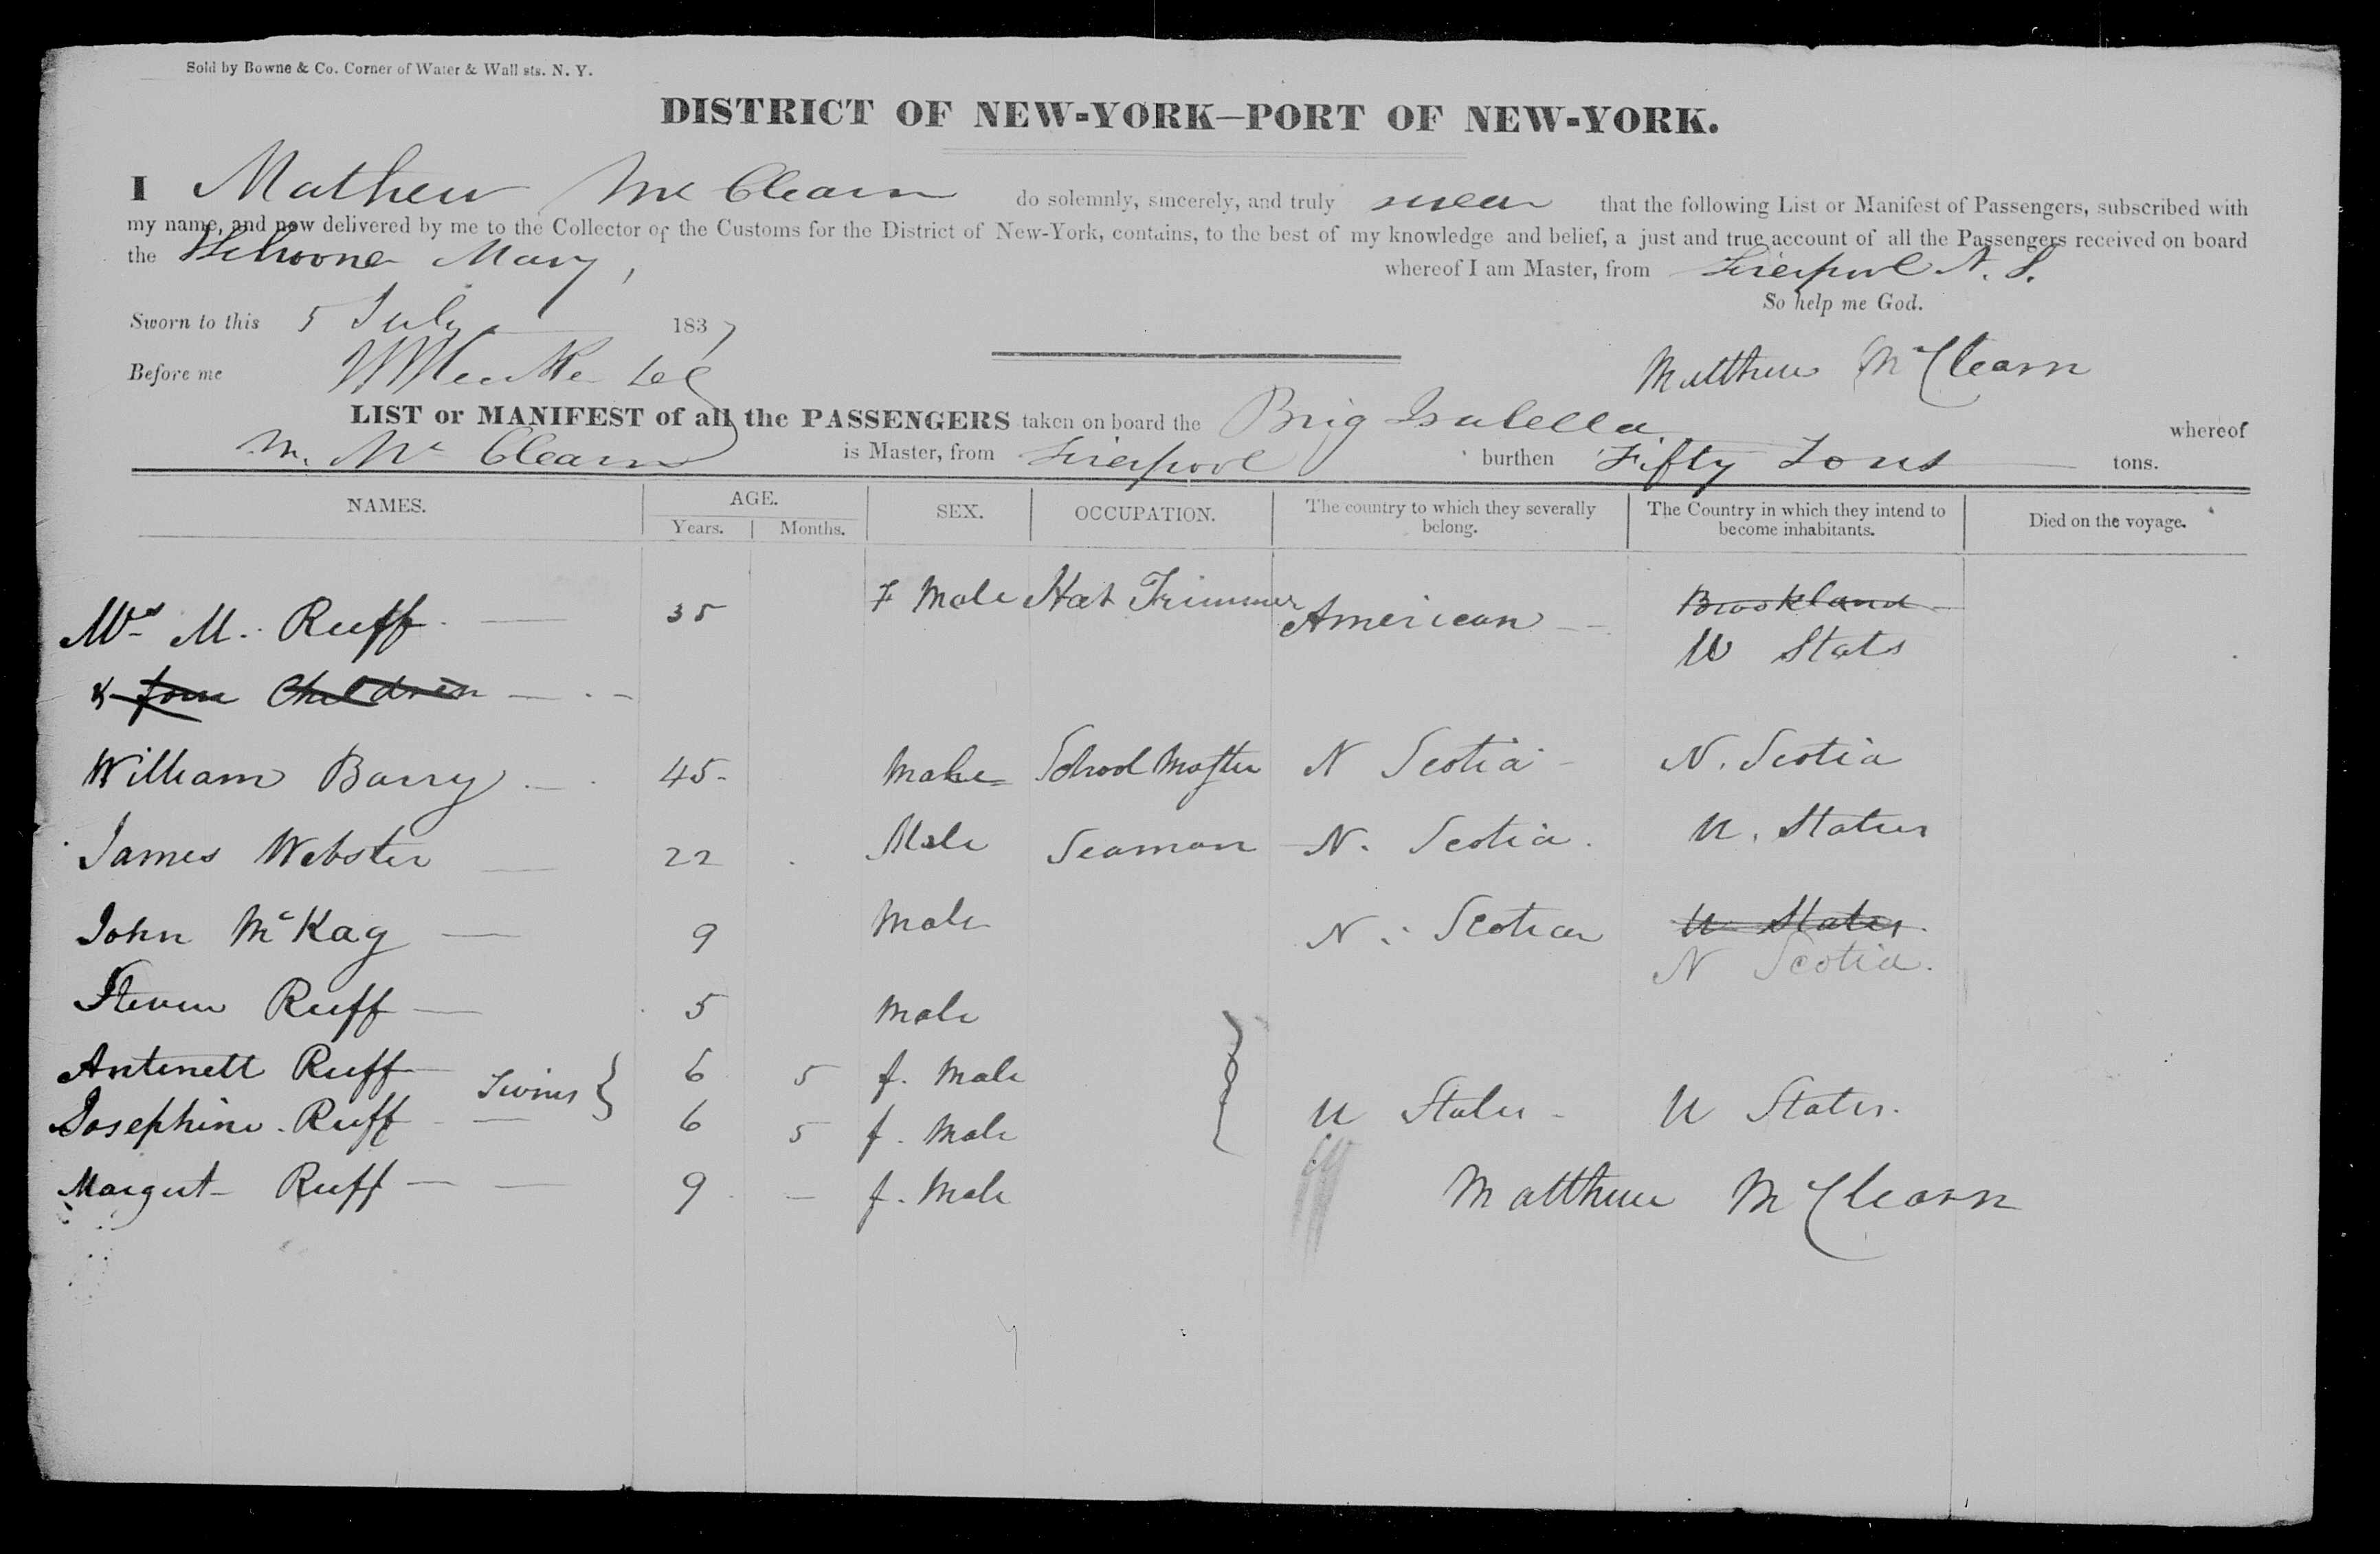 Sold by Bowne & Co. Corner of Water & Wall sts. N. Y.
DISTRICT OF NEW-YORK—PORT OF NEW-YORK.
I Mathew Mc Clearn do solemnly, sincerely, and truly swear that the following List or Manifest of Passengers, subscribed with
my name, and now delivered by me to the Collector of the Customs for the District of New-York, contains, to the best of my knowledge and belief, a just and true account of all the Passengers received on board
the Schooner Mary, whereof I am Master, from Liverpool N. S.
So help me God.
Sworn to this 5 July 1837
Before me
Matthew McClearn
LIST or MANIFEST of all the PASSENGERS taken on board the Brig Isabella whereof
M. Mc Clearn is Master, from Liverpool burthen Fifty Tons tons.
NAMES. AGE. SEX. OCCUPATION. The country to which they severally belong. The Country in which they intend to become inhabitants. Died on the voyage.
Years. Months.
Mrs M. Ruff 35 F Male Hat Trimmer American Brookland
U Stats
& four Children
William Barry 45 Male School Master N Scotia N. Scotia
James Webster 22 Male Seaman N. Scotia U. States
John McKay 9 Male N. Scotia U States
N Scotia.
Steven Ruff 5 Male
Antinett Ruff 6 5 f. Male
Twins
Josephine Ruff 6 5 f. Male U States U States.
Margret Ruff 9 f. Male
Matthew McClearn